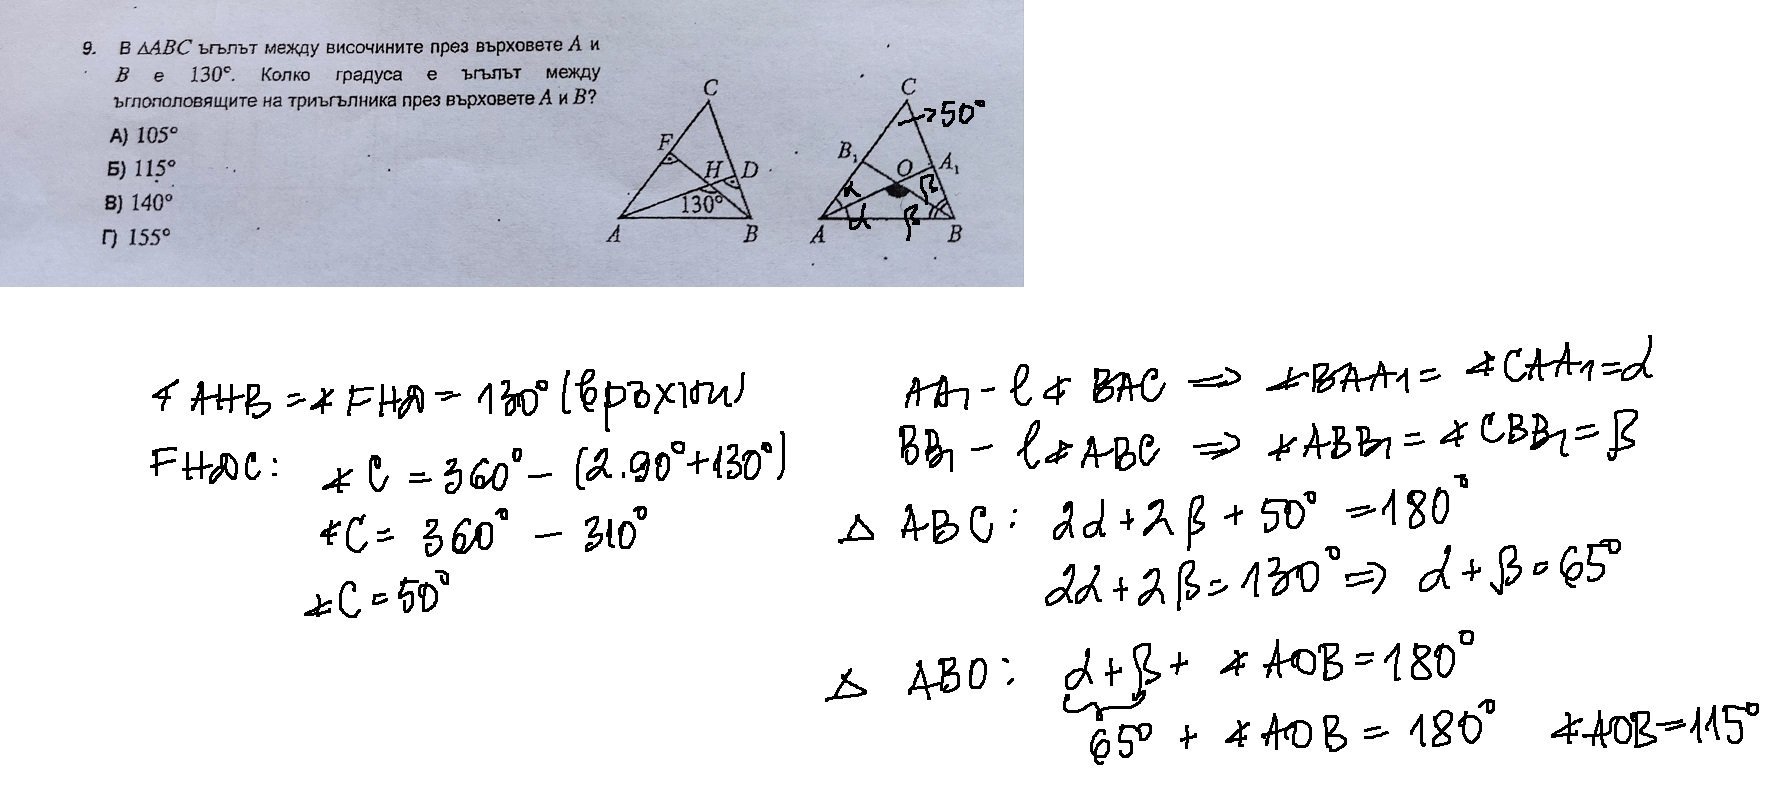 9. В ΔABC ъгълът между височините през върховете A и
B е 130°. Колко градуса е ъгълът между
ъглополовящите на триъгълника през върховете A и B?
А) 105°
Б) 115°
В) 140°
Г) 155°
C
F
H
D
130°
A
B
C
50°
B₁
O
A₁
α
β
α
β
A
B
∢AHB = ∢FHD = 130° (връхни)
FHDC: ∢C = 360° - (2.90° + 130°)
∢C = 360° - 310°
∢C = 50°
AA₁ - l ∢ BAC ⇒ ∢BAA₁ = ∢CAA₁ = α
BB₁ - l ∢ ABC ⇒ ∢ABB₁ = ∢CBB₁ = β
Δ ABC: 2α + 2β + 50° = 180°
2α + 2β = 130° ⇒ α + β = 65°
Δ ABO: α + β + ∢AOB = 180°
65° + ∢AOB = 180° ∢AOB = 115°